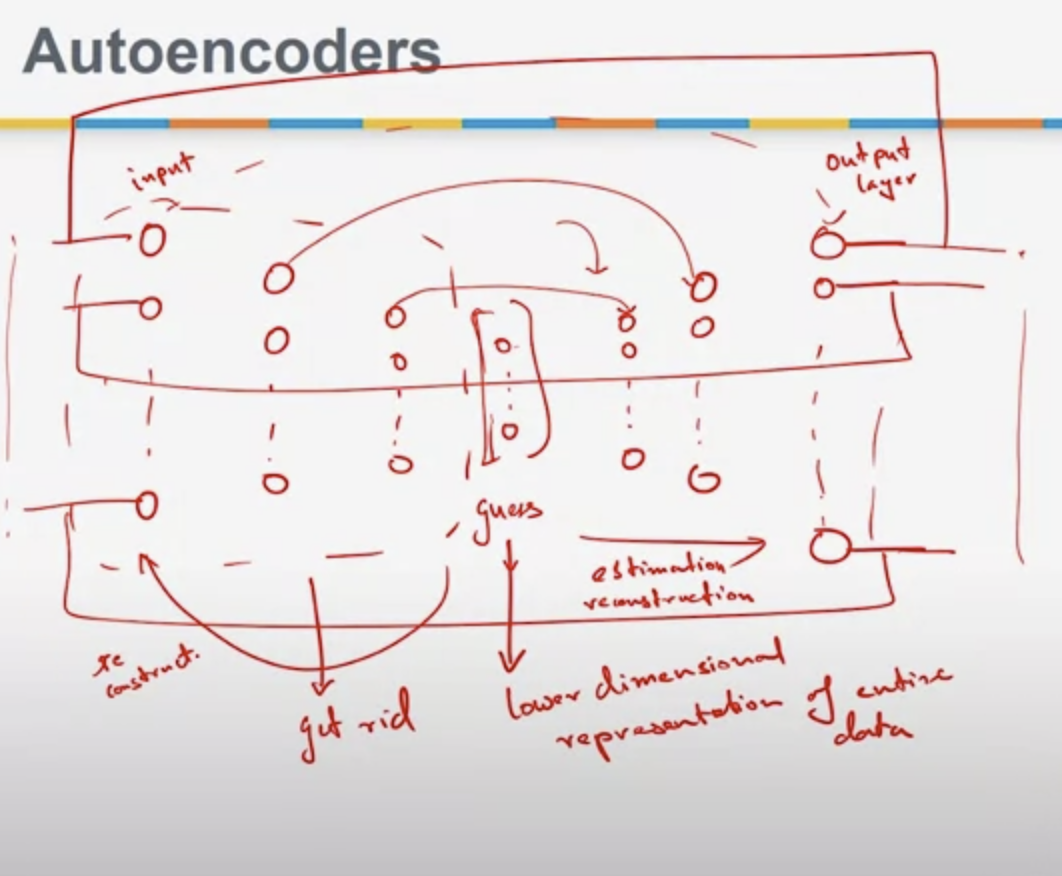 Autoencoders
input
output
layer
guess
estimation
reconstruction
re
construct.
get rid
lower dimensional
representation of entire
data